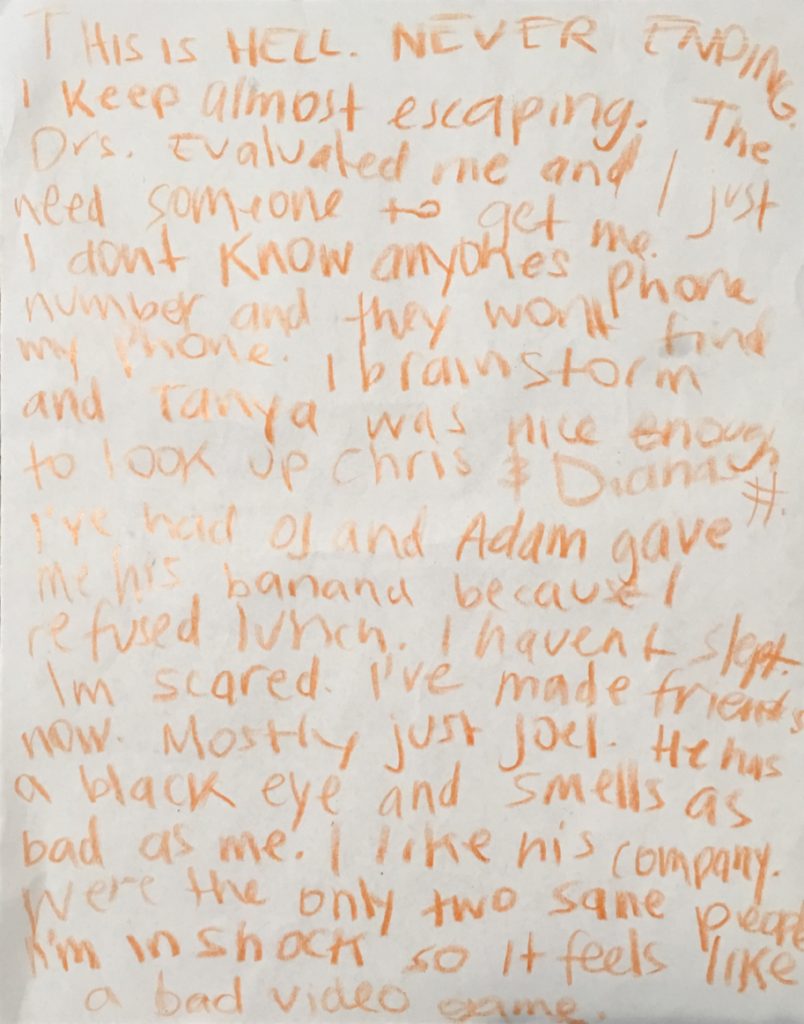 THis is HELL. NEVER ENDING.
I Keep almost escaping. The
Drs. Evaluated me and I just
need someone to get me.
I dont Know anyones Phone
number and they wont find
my phone. I brainstorm
and Tanya was nice enough
to look up Chris & Dianas #.
I've had OJ and Adam gave
me his banana because I
refused lunch. I havent slept.
Im scared. I've made friends
now. Mostly just Joel. He has
a black eye and smells as
bad as me. I like his company.
Were the only two sane people
I'm in shock so it feels like
a bad video game.